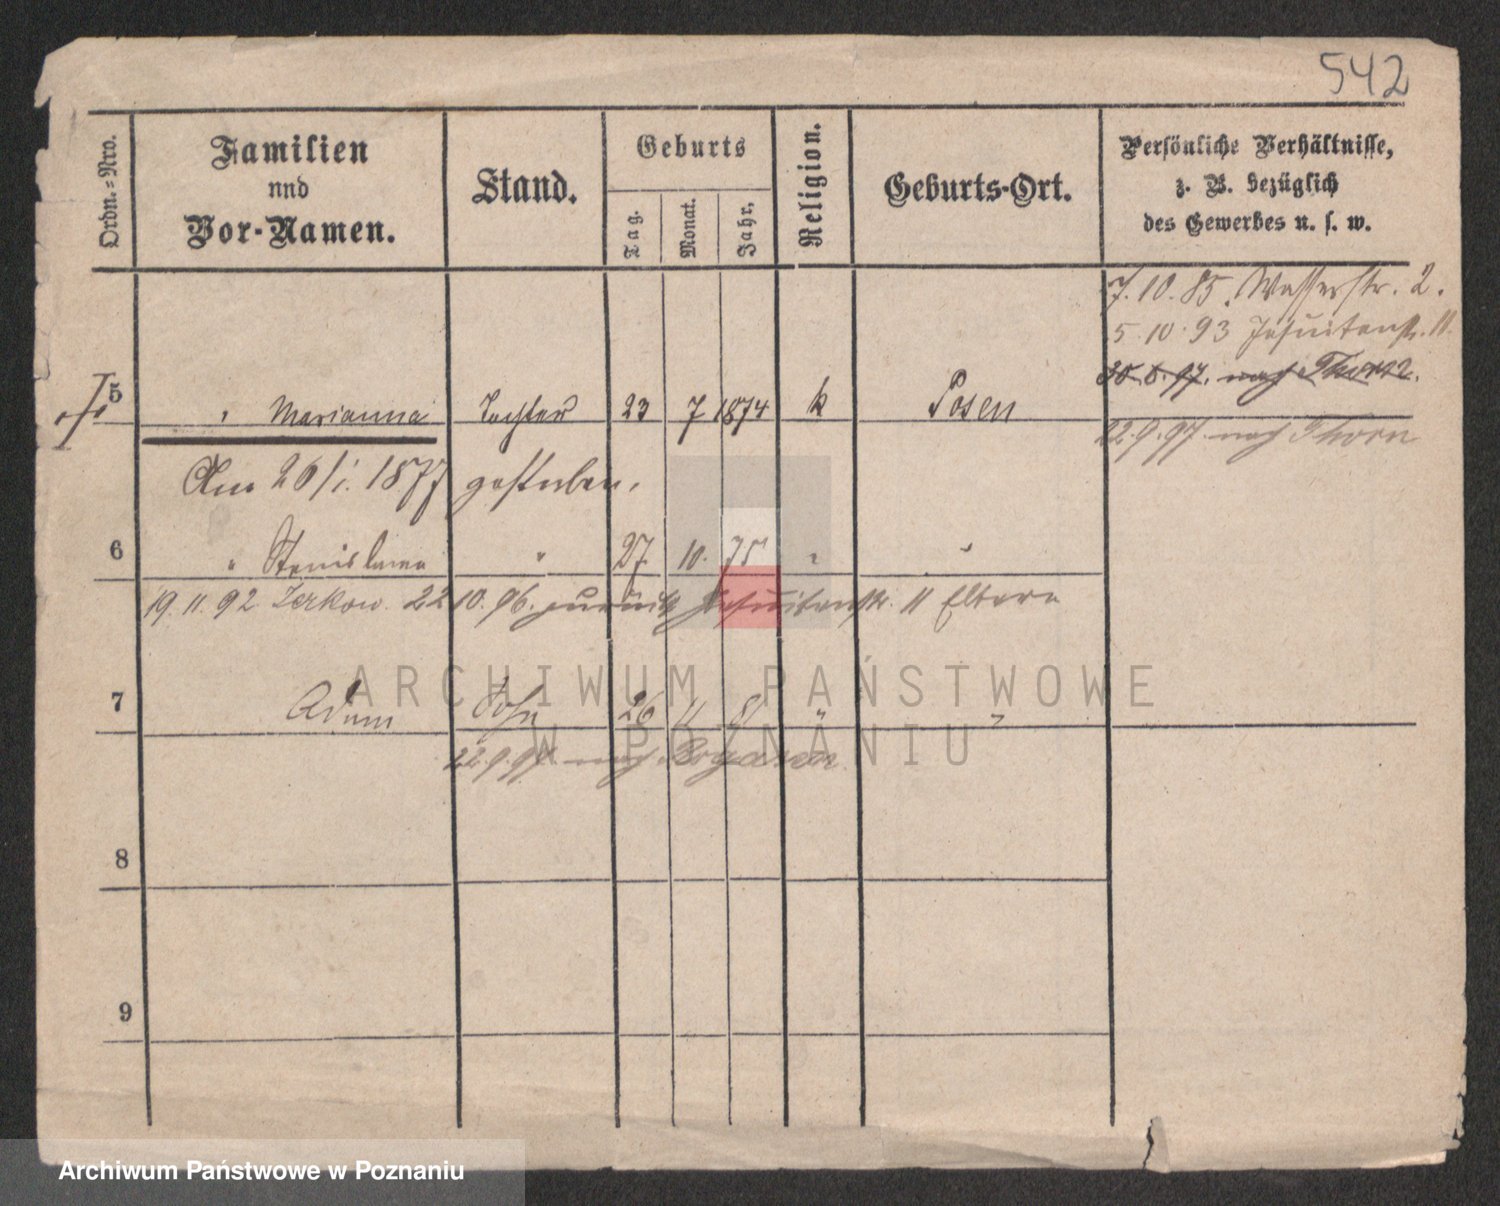 542
Ordn.-Nro.
Familien
und
Vor-Namen.
Stand.
Geburts
Tag.
Monat.
Jahr.
Religion.
Geburts-Ort.
Persönliche Verhältnisse,
z. B. bezüglich
des Gewerbes u. s. w.
7.10.85. Wasserstr. 2.
5.10.93 Jesuitenstr. 11
nach Thorn.
5 " Marianna Tochter 23 7 1874 k Posen
22.9.97 nach Thorn
Am 26/1. 1877 gestorben.
6 " Stanislawa " 27. 10. 75 " "
19.11.92 Zerkow. 22 10.96. zurück Jesuitenstr. 11 Eltern
7 Adam Sohn 26 11 81 " "
22.9.97 nach
8
9
ARCHIWUM PAŃSTWOWE
W POZNANIU
Archiwum Państwowe w Poznaniu